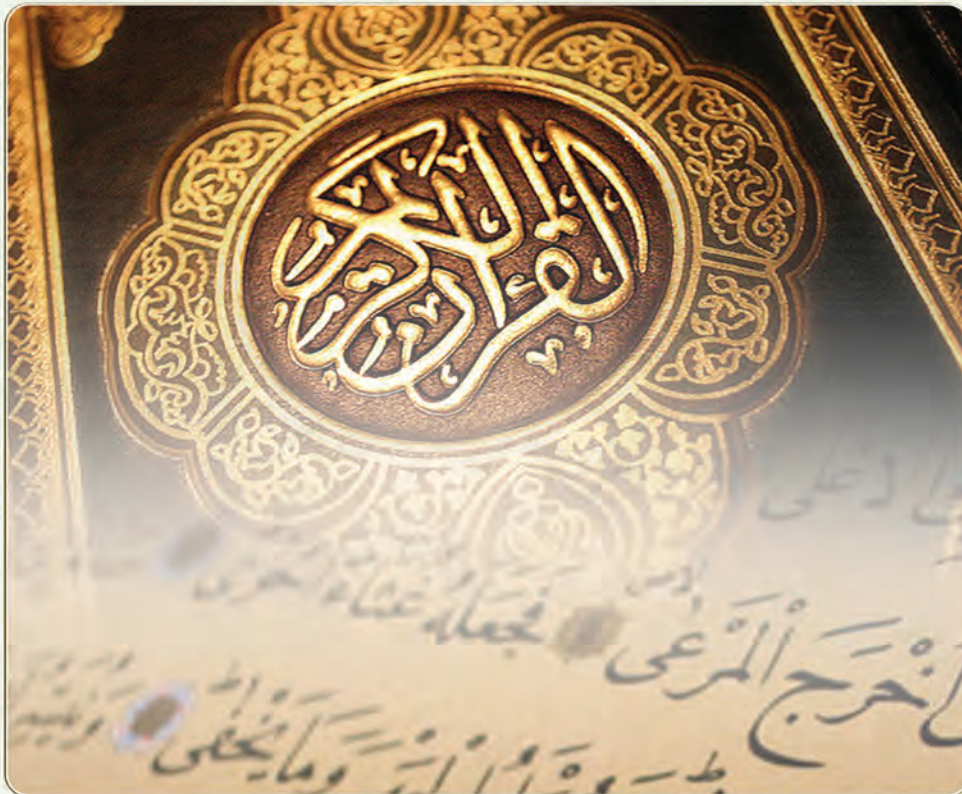 القرآن الكريم
الاعلى
اَخْرَجَ الْمَرْعٰى فجعله غثاء احوى
وَمَا يَخْفٰى